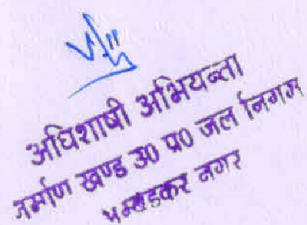 अधिशाषी अभियन्ता
निर्माण खण्ड उ० प्र० जल निगम
अम्बेडकर नगर